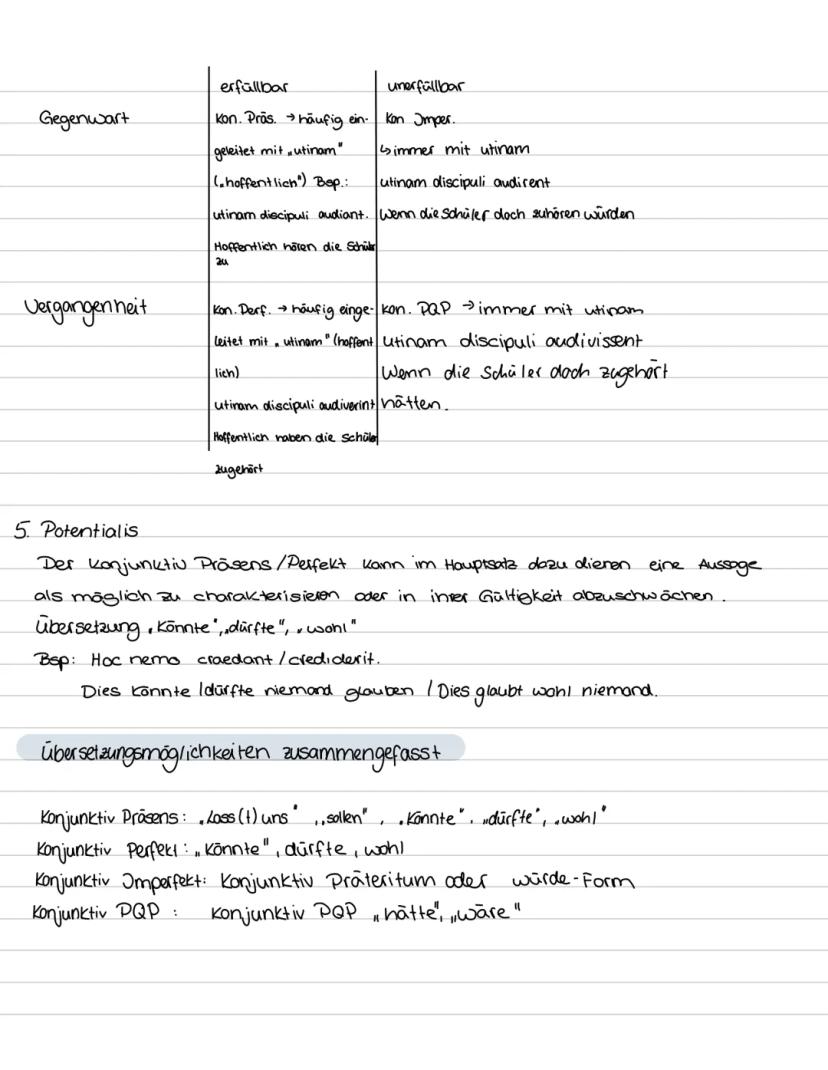 erfüllbar unerfüllbar
Gegenwart Kon. Präs. → häufig ein- Kon Imper.
geleitet mit „utinam" ↳ immer mit utinam
(„hoffentlich") Bsp.: utinam discipuli audirent
utinam discipuli audiant. Wenn die Schüler doch zuhören würden
Hoffentlich hören die Schüler
zu
Vergangenheit Kon. Perf. → häufig einge- kon. PQP → immer mit utinam
leitet mit „utinam" (hoffent utinam discipuli audivissent
lich) Wenn die Schüler doch zugehört
utinam discipuli audiverint hätten.
Hoffentlich haben die Schüler
zugehört
5. Potentialis
Der Konjunktiv Präsens/Perfekt kann im Hauptsatz dazu dienen eine Aussage
als möglich zu charakterisieren oder in ihrer Gültigkeit abzuschwächen.
Übersetzung „könnte", „dürfte", „wohl"
Bsp: Hoc nemo craedant/crediderit.
Dies könnte/dürfte niemand glauben / Dies glaubt wohl niemand.
Übersetzungsmöglichkeiten zusammengefasst
Konjunktiv Präsens: „Lass(t) uns", „sollen", „könnte", „dürfte", „wohl"
Konjunktiv Perfekt: „könnte", dürfte, wohl
Konjunktiv Imperfekt: Konjunktiv Präteritum oder würde-Form
Konjunktiv PQP: Konjunktiv PQP „hätte", „wäre"